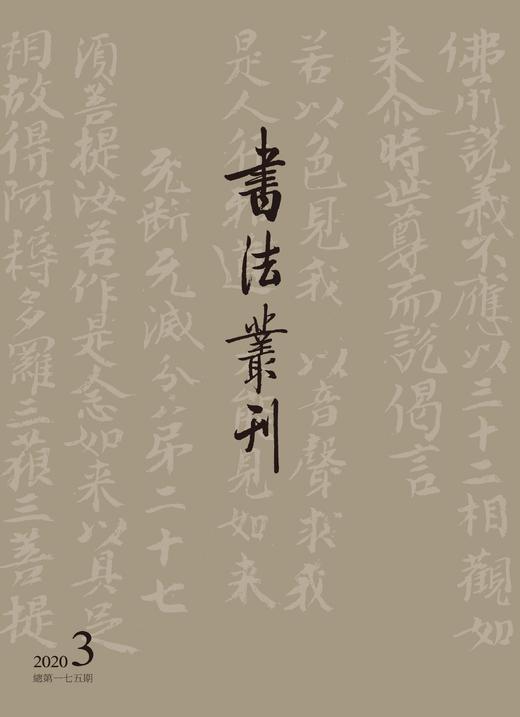 書法叢刊
佛所說義不應以三十二相觀如
来尒時世尊而說偈言
若以色見我 以音聲求我
是人行 道 見如来
无断无滅分弟二十七
須菩提汝若作是念如来以具足
相故得阿耨多羅三藐三菩提
2020 3
總第一七五期